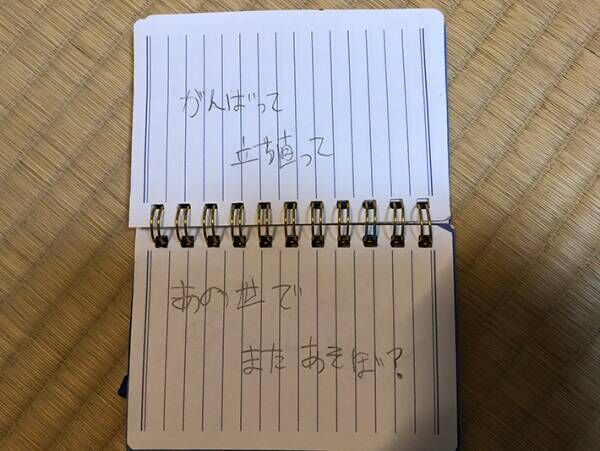 がんばって
立ち直って
あの世で
またあそぼ?